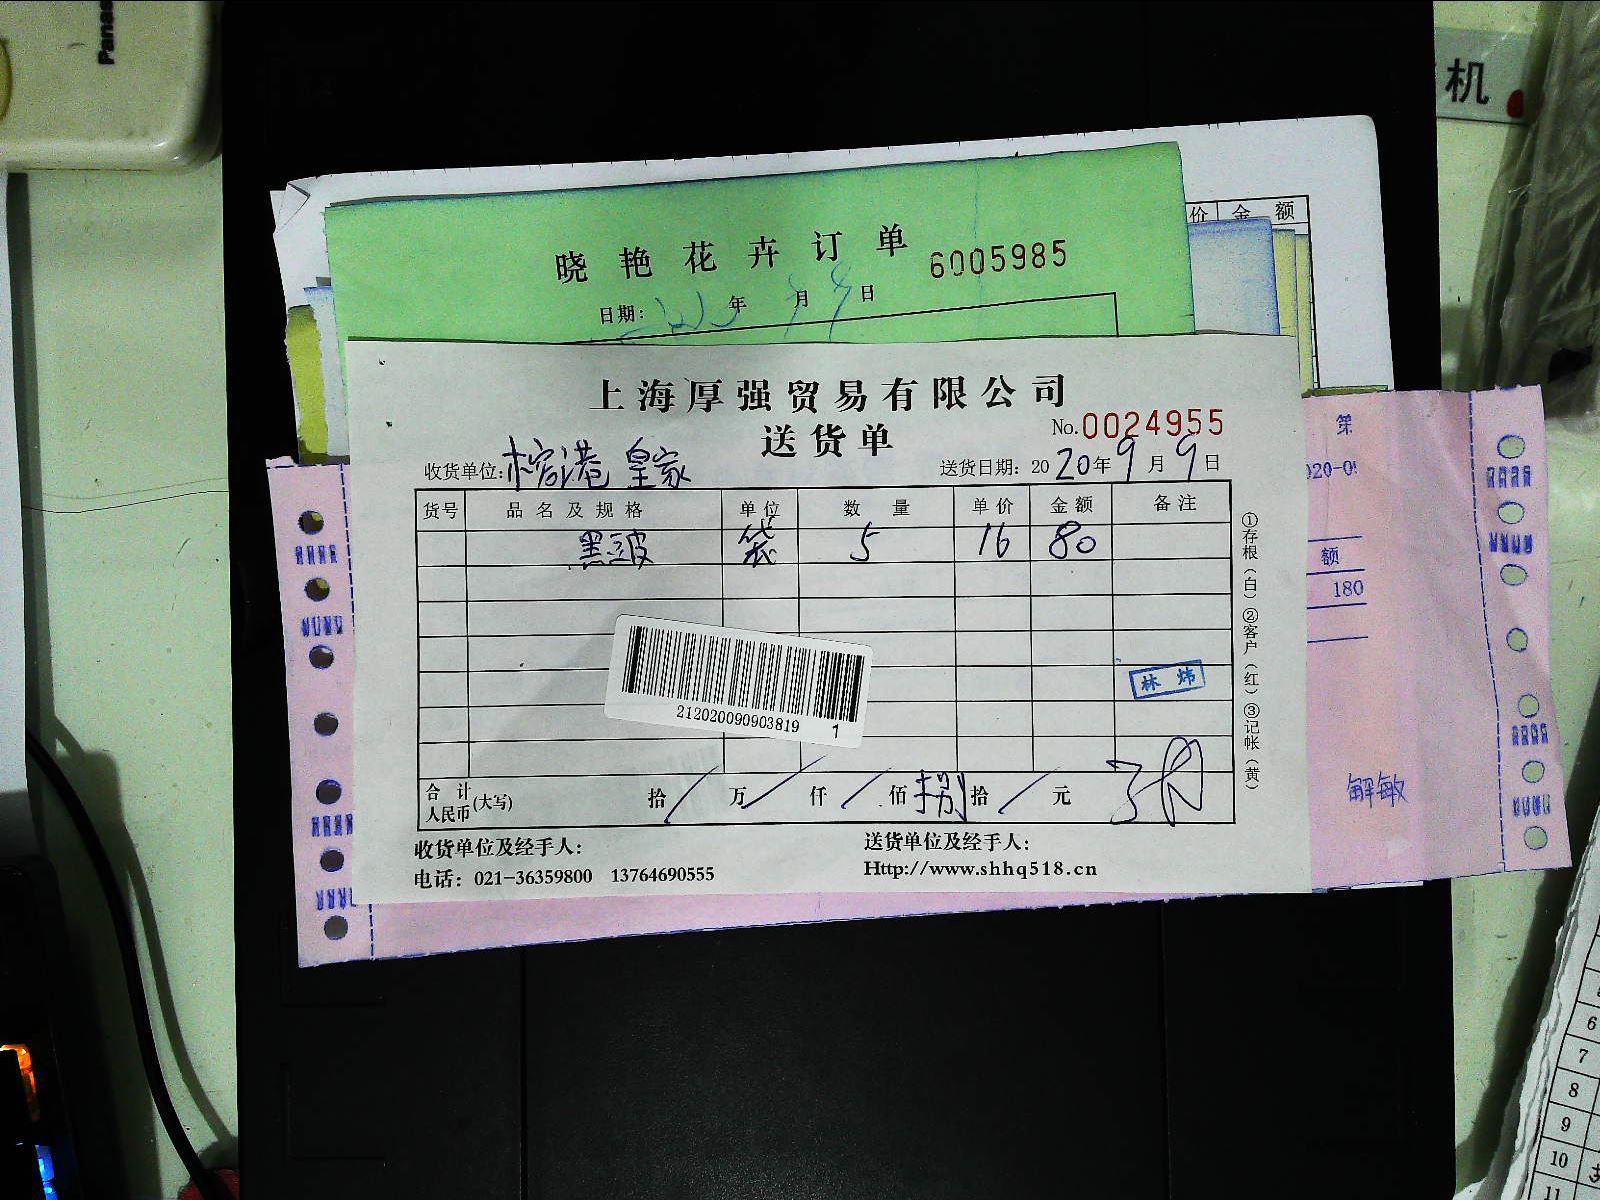 Panas
机
价 金 额
晓艳花卉订单 6005985
日期: 年 月 9 日
上海厚强贸易有限公司
送货单 No.0024955
收货单位: 榕港皇家 送货日期: 2020年9月9日
货号 品名及规格 单位 数量 单价 金额 备注
黑玻 袋 5 16 80
①存根(白)②客户(红)③记帐(黄)
第
020-0
额
180
林炜
212020090903819 1
合计人民币(大写) 拾 万 仟 佰 捌拾 元
解敏
收货单位及经手人: 送货单位及经手人:
电话: 021-36359800 13764690555 Http://www.shhq518.cn
6
7
8
9
10
11